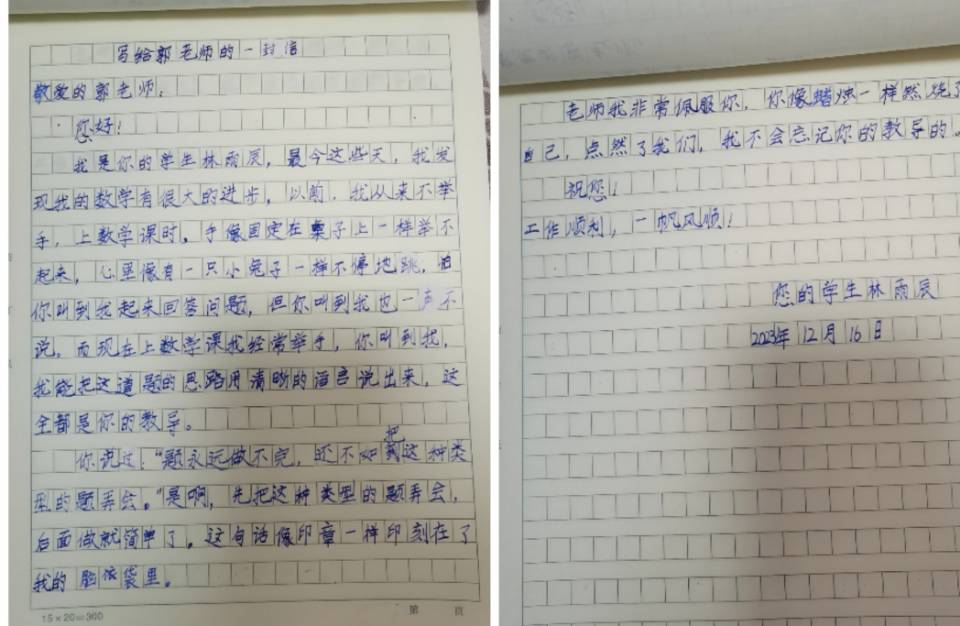 写给郭老师的一封信
敬爱的郭老师：
您好！
我是你的学生林雨辰，最今这些天，我发
现我的数学有很大的进步，以前，我从来不举
手，上数学课时，手像固定在桌子上一样举不
起来，心里像有一只小兔子一样不停地跳，怕
你叫到我起来回答问题，但你叫到我也一声不
说，而现在上数学课我经常举手，你叫到我，
我能把这道题的思路用清晰的语言说出来，这
全都是你的教导。
你说过：“题永远做不完，还不如把这种类
型的题弄会。”是啊，先把这种类型的题弄会，
后面做就简单了。这句话像印章一样印刻在了
我的脑袋里。
15×20=300 第 页
老师我非常佩服你，你像蜡烛一样然烧了
自己，点然了我们，我不会忘记你的教导的。
祝您！
工作顺利，一帆风顺！
您的学生林雨辰
2023年12月16日